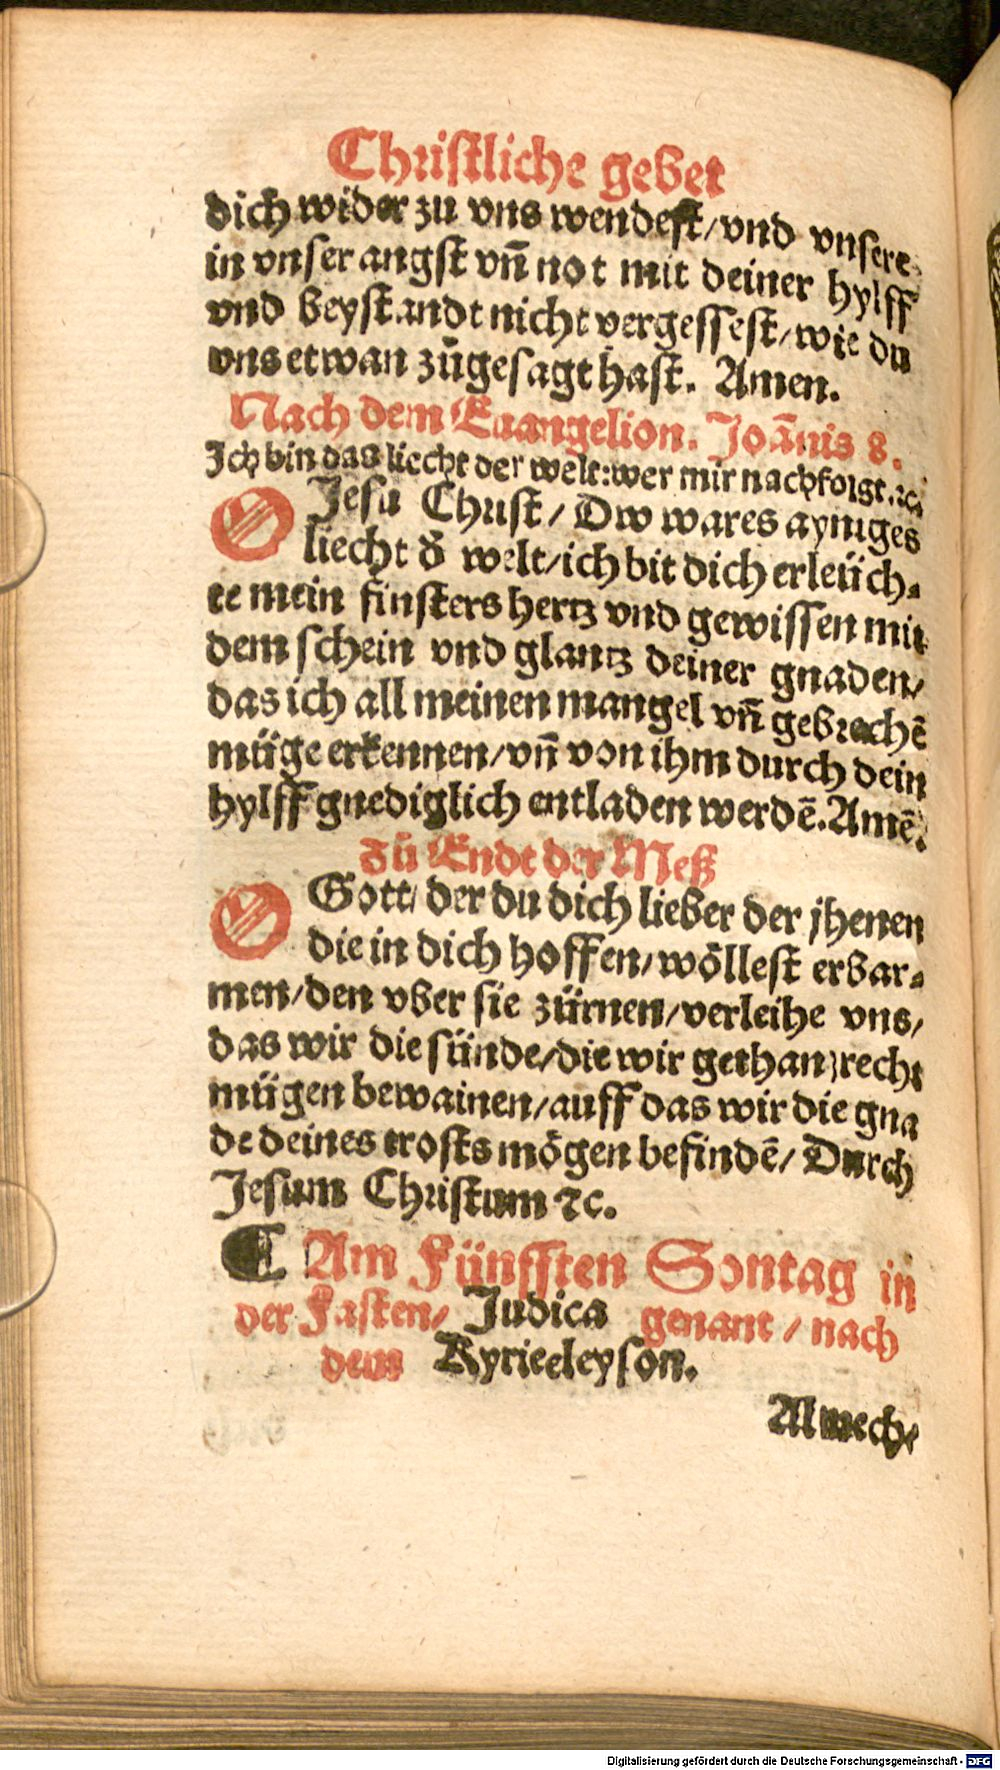 Christliche gebet
dich wider zu vns wendest/vnd vnsere
in vnser angst vn̄ not mit deiner hylff
vnd beystandt nicht vergessest/wie du
vns etwan zůgesagt hast. Amen.
Nach dem Euangelion. Joānis 8.
Ich bin das liecht der welt:wer mir nachfolgt.ꝛc.
O Jesu Christ/ Dw wares ayniges
liecht đ welt/ich bit dich erleüch⸗
te mein finsters hertz vnd gewissen mit
dem schein vnd glantz deiner gnaden/
das ich all meinen mangel vn̄ gebrechē
müge erkennen/vn̄ von ihm durch dein
hylff gnediglich entladen werdē.Amē.
Zů Endt der Meß
O Gott/ der du dich lieber der jhenen
die in dich hoffen/wöllest erbar⸗
men/den vber sie zürnen/verleihe vns/
das wir die sünde/die wir gethan/recht
mügen bewainen/auff das wir die gna
de deines trosts mögen befindē/ Durch
Jesum Christum ꝛc.
¶ Am Fünfften Sontag in
der Fasten/ Judica genant / nach
dem Kyrieeleyson.
Almech⸗
Digitalisierung gefördert durch die Deutsche Forschungsgemeinschaft - DFG